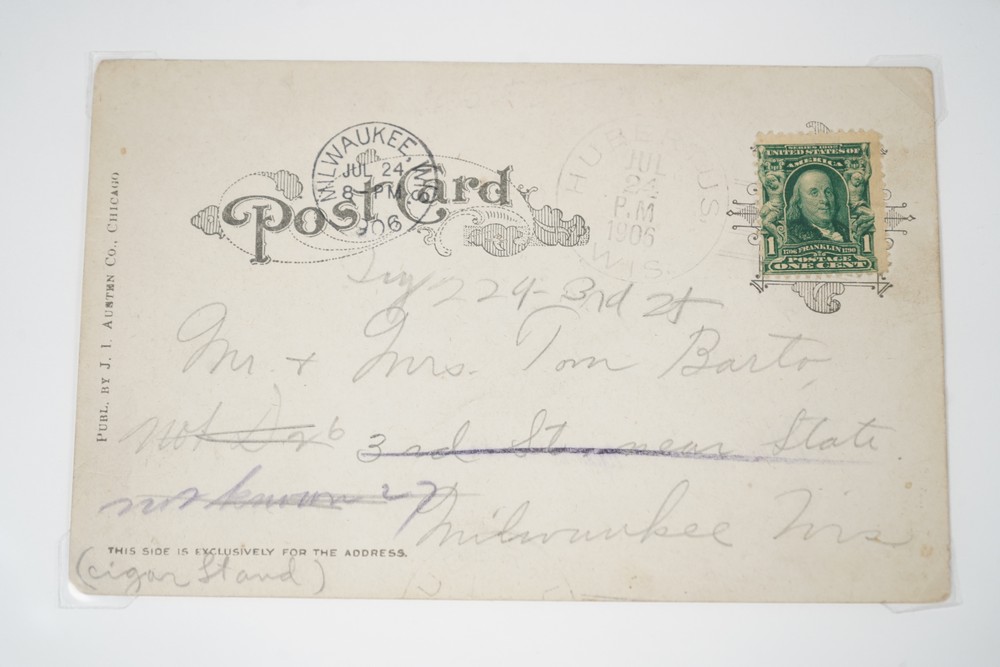 PUBL. BY J. I. AUSTEN CO., CHICAGO
MILWAUKEE, WIS.
JUL 24
8 - PM
1906
Post Card
HUBERTUS.
JUL
24
P.M
1906
WIS.
SERIES 1902
UNITED STATES OF
AMERICA
1 1706 FRANKLIN 1790 1
POSTAGE
ONE CENT
224 - 3rd St
Mr. + Mrs. Tom Barto
not 6
3rd St. near State
not known 27
Milwaukee Wis
THIS SIDE IS EXCLUSIVELY FOR THE ADDRESS.
(cigar Stand)